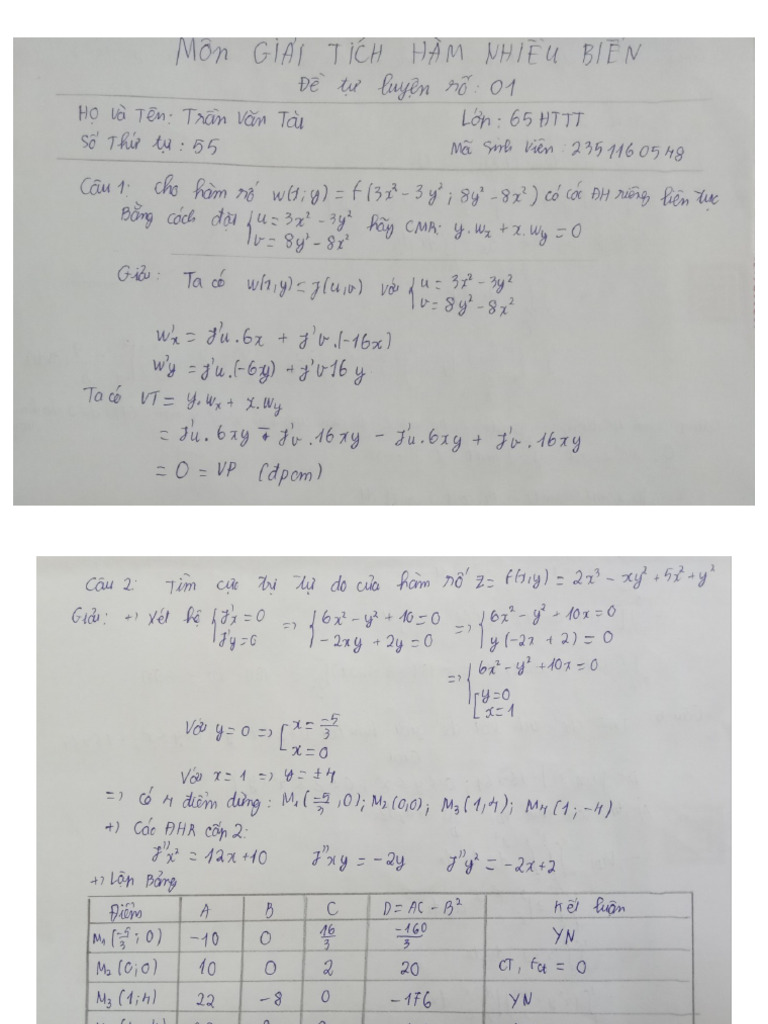 Môn GIẢI TÍCH HÀM NHIỀU BIẾN
Đề tự luyện số: 01
Họ và Tên: Trần Văn Tài Lớp: 65HTTT
Số Thứ tự: 55 Mã Sinh Viên: 2351160548
Câu 1: Cho hàm số w(x;y) = f(3x² - 3y²; 8y² - 8x²) có các ĐH riêng liên tục
Bằng cách đặt { u = 3x² - 3y² ; v = 8y² - 8x² hãy CMR: y.wx + x.wy = 0
Giải: Ta có w(x,y) = f(u,v) với { u = 3x² - 3y² ; v = 8y² - 8x²
w'x = f'u.6x + f'v.(-16x)
w'y = f'u.(-6y) + f'v 16y
Ta có VT = y.wx + x.wy
= f'u.6xy - f'v.16xy - f'u.6xy + f'v.16xy
= 0 = VP (đpcm)
Câu 2: Tìm cực trị tự do của hàm số z = f(x,y) = 2x³ - xy² + 5x² + y²
Giải: +) Xét hệ { f'x = 0 ; f'y = 0 => { 6x² - y² + 10 = 0 ; -2xy + 2y = 0 => { 6x² - y² + 10x = 0 ; y(-2x + 2) = 0
=> { 6x² - y² + 10x = 0 ; [ y = 0 ; x = 1
Với y = 0 => [ x = -5/3 ; x = 0
Với x = 1 => y = ±4
=> Có 4 điểm dừng: M1(-5/3, 0); M2(0,0); M3(1,4); M4(1;-4)
+) Các ĐHR cấp 2:
f''x² = 12x+10 f''xy = -2y f''y² = -2x+2
+) Lập Bảng
Điểm A B C D = AC - B² Kết luận
M1(-5/3; 0) -10 0 16/3 -160/3 YN
M2(0;0) 10 0 2 20 CT, fct = 0
M3(1;4) 22 -8 0 -176 YN